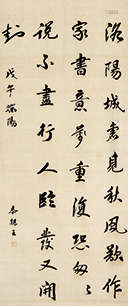 洛陽城裏見秋風欲作
家書意萬重復恐匆匆
說不盡行人臨發又開
封
戊午端陽